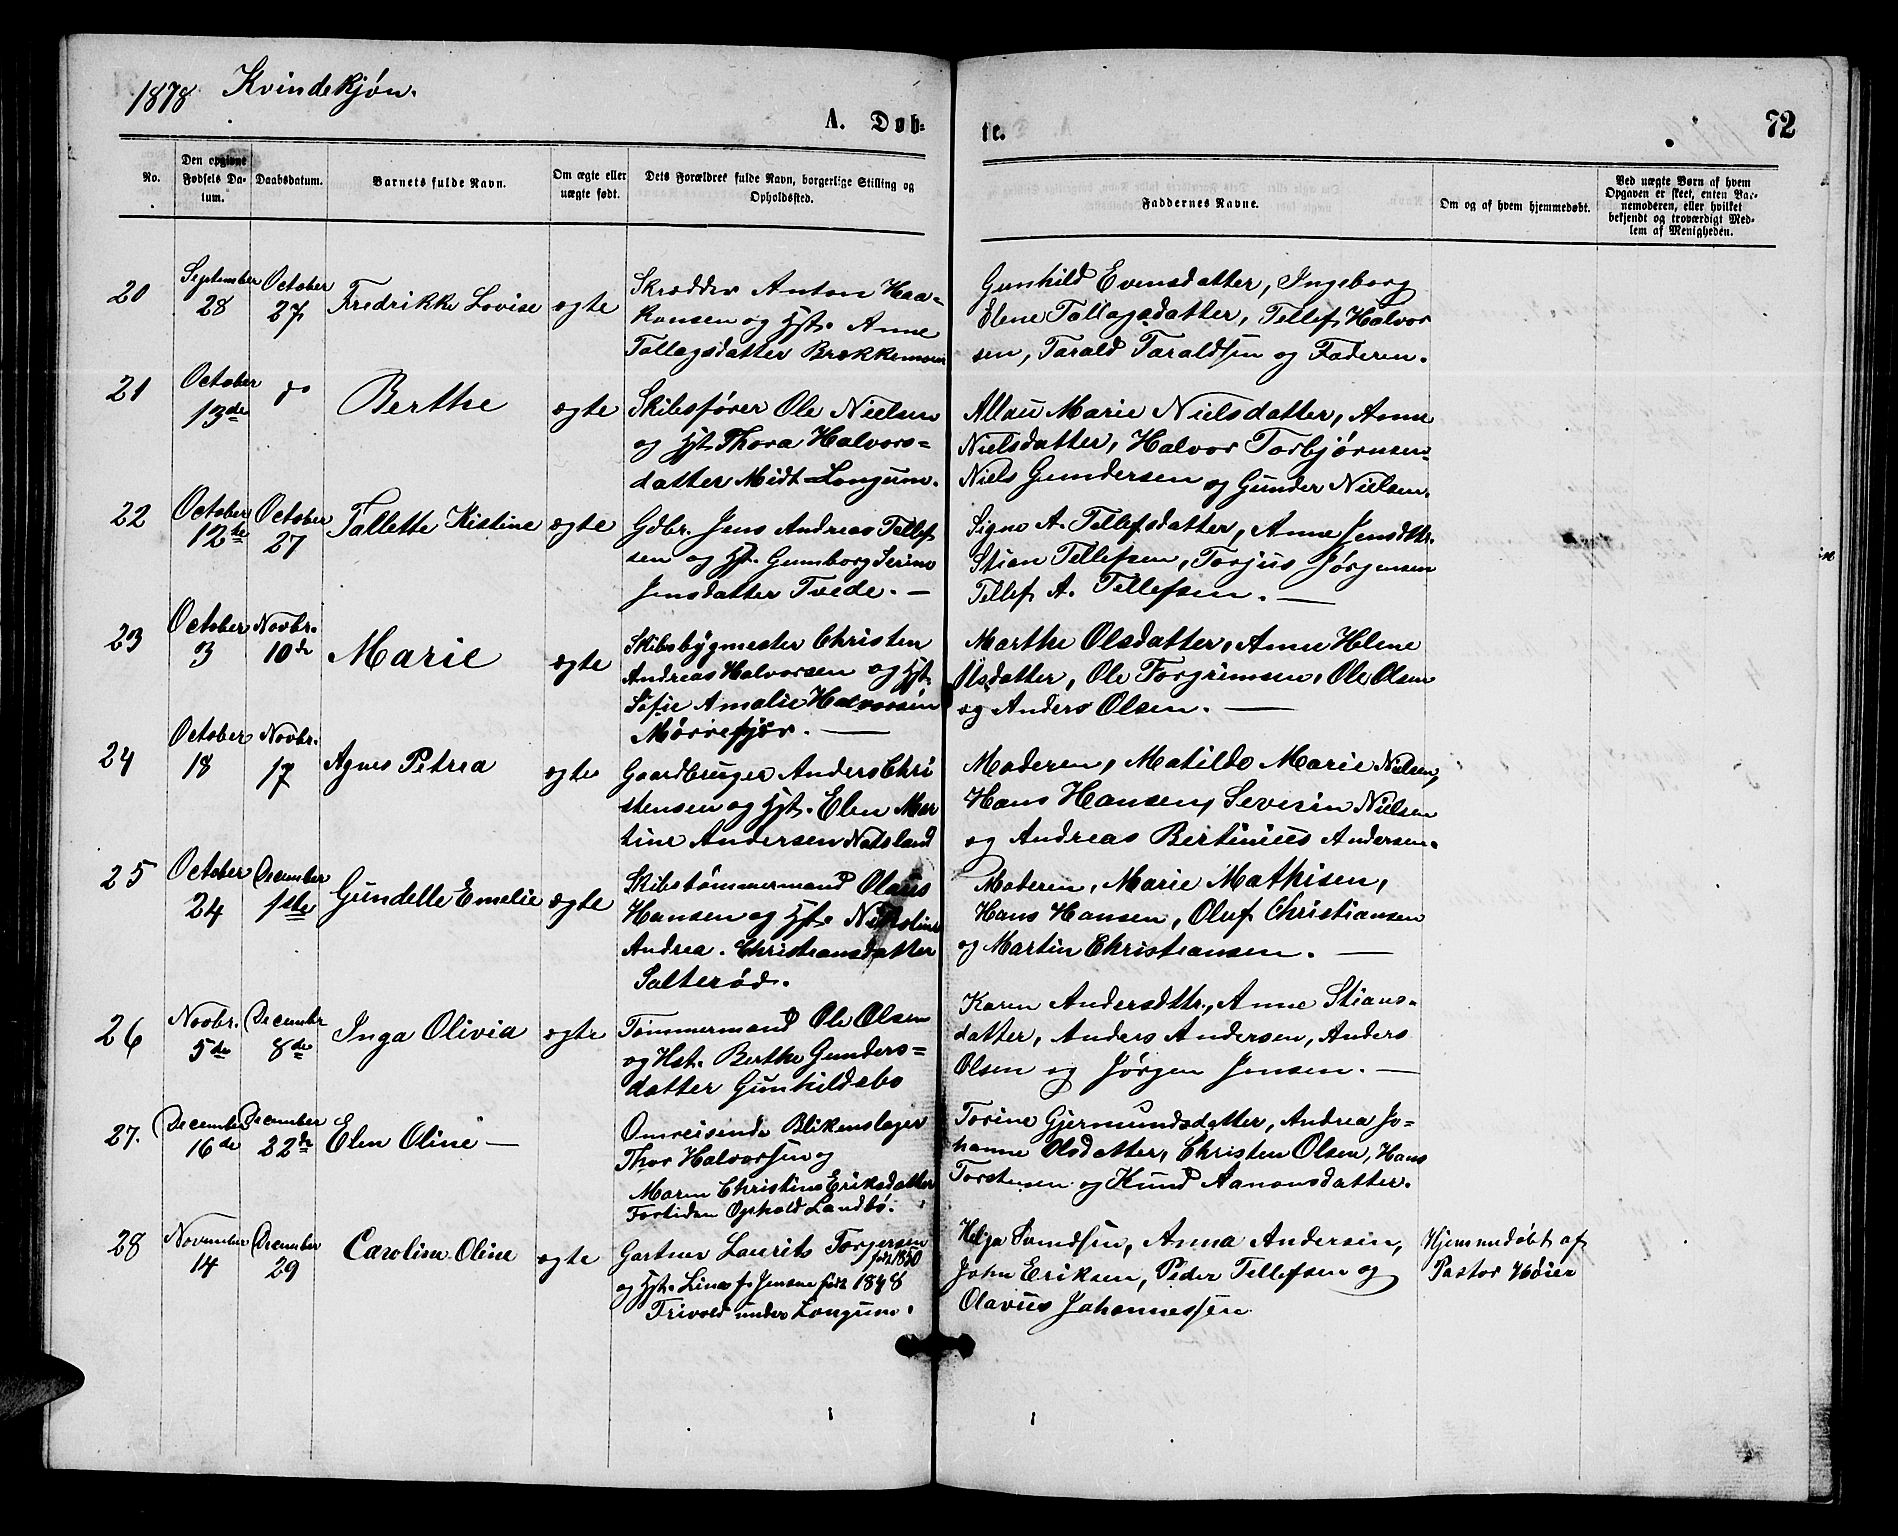 1878 Kvindekjøn.
A. Døb-
te.
72
No.
Den opgivne Fødsels Da-
tum.
Daabsdatum.
Barnets fulde Navn.
Om ægte eller
uægte født.
Dets Forældres fulde Navn, borgerlige Stilling og
Opholdssted.
Faddernes Navne.
Om og af hvem hjemmedøbt.
Ved uægte Børn af hvem
Opgaven er skeet, enten Bar-
nemoderen, eller hvilket
bekjendt og troværdigt Med-
lem af Menigheden.
20
September
28
October
27
Fredrikke Lovise
ægte
Skrædder Anton Haa-
konsen og Hst. Anne
Tallagsdatter Brekkemoen
Gunhild Evensdatter, Ingeborg
Elene Tallagsdatter, Tellef Halvor
sen, Tarald Taraldsen og Faderen.
21
October
13de
do
Berthe
ægte
Skibsfører Ole Nielsen
og Hst. Thora Halvors-
datter Midt-Longum.
Allau Marie Nielsdatter, Anne
Nielsdatter, Halvor Torbjørnsen
Niels Gundersen og Gunder Nielsen.
22
October
12te
October
27
Tallette Kistine
ægte
Gdbr. Jens Andreas Tellef
sen og Hst. Gunnborg Serine
Jensdatter Tvede. —
Signe A. Tellefsdatter, Anne Jensdtr.
Stian Tellefsen, Torjus Jørgensen
Tellef A. Tellefsen. —
23
October
3
Novbr.
10de
Marie
ægte
Skibsbygmester Christen
Andreas Halvorsen og Hst.
Sofie Amalie Halvorsen
Mørrefjær. —
Marthe Olsdatter, Anne Helene
Olsdatter, Ole Torgrimsen, Ole Olsen
og Anders Olsen. —
24
October
18
Novbr.
17
Agnes Petrea
ægte
Gaardbruger Anders Chri
stensen og Hst. Elen Mar
tine Andersen Natsland
Moderen, Matilde Marie Nielsen,
Hans Hansen, Severin Nielsen
og Andreas Bertinius Andersen.
25
October
24
December
1ste
Gundelle Emelie
ægte
Skibstømmermand Olaus
Hansen og Hst. Nikoline
Andrea Christiansdatter
Salterød.
Moderen, Marie Mathisen,
Hans Hansen, Oluf Christiansen
og Martin Christiansen. —
26
Novbr.
5de
Decembr
8de
Inga Olivia
ægte
Tømmermand Ole Olsen
og Hst. Berthe Gunders-
datter Gunhildsbo
Karen Andersdtr., Anne Stians-
datter, Anders Andersen, Anders
Olsen og Jørgen Jensen. —
27.
December
16de
December
22de
Elen Oline —
Omreisende Blikenslager
Thor Halvorsen og
Maren Christine Eriksdatter
Fortiden Ophold Landbø.
Torine Gjermundsdatter, Andrea Jo-
hanne Olsdatter, Christen Olsen, Hans
Torstensen og Knud Aanonsdatter.
28
November
14
December
29
Caroline Oline
ægte
Gartner Laurits Torgersen
født 1850
og Hst. Lina f. Jensen født 1848
Trivold under Longum.
Helga Svendsen, Anna Andersen,
John Eriksen, Peder Tellefsen og
Olavus Johannessen
Hjemmedøbt af
Pastor Høier